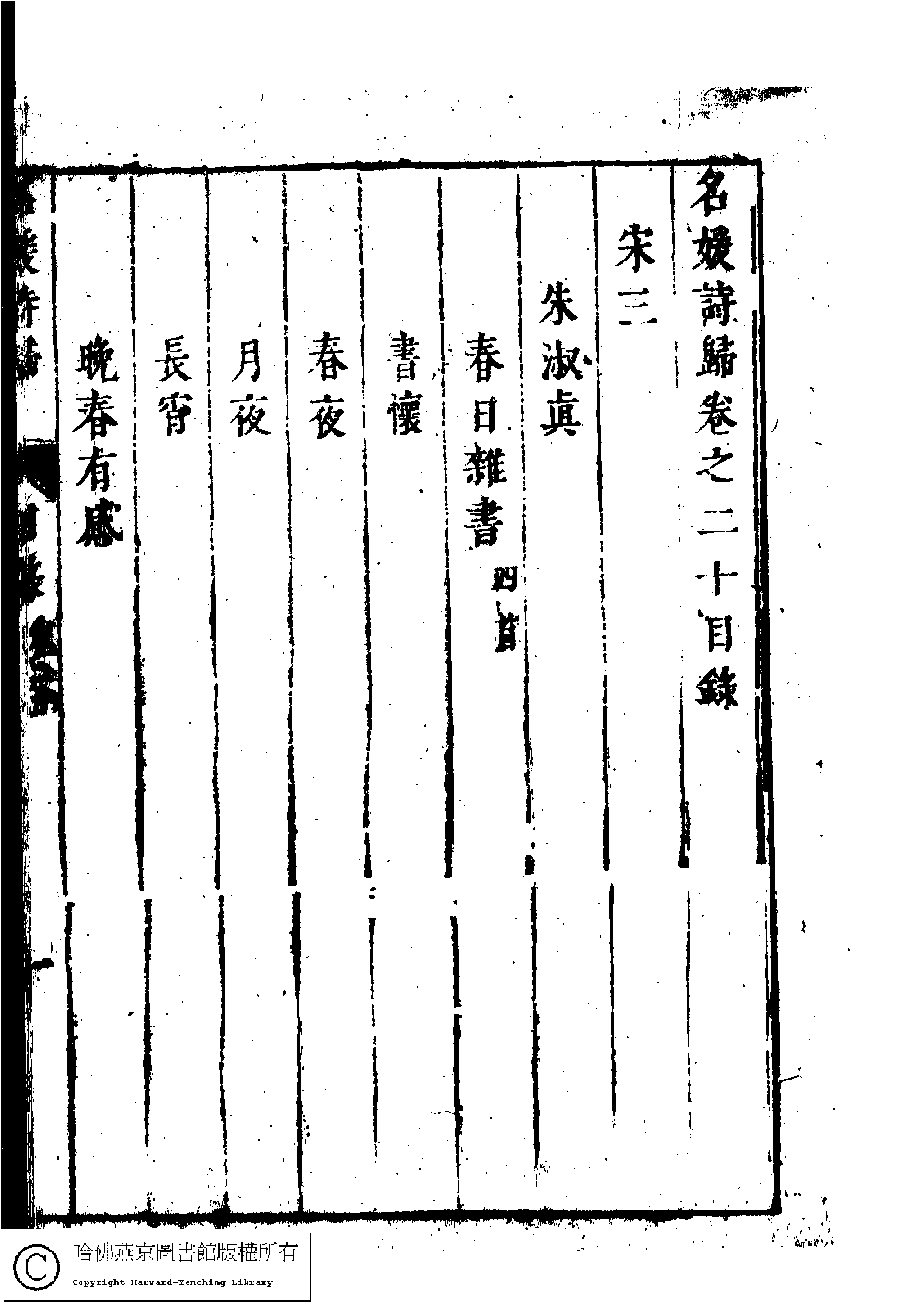 名媛詩歸卷之二十目錄
宋三
朱淑眞
春日雜書四首
書懷
春夜
月夜
長宵
晚春有感
哈佛燕京圖書館版權所有
Copyright Harvard-Yenching Library